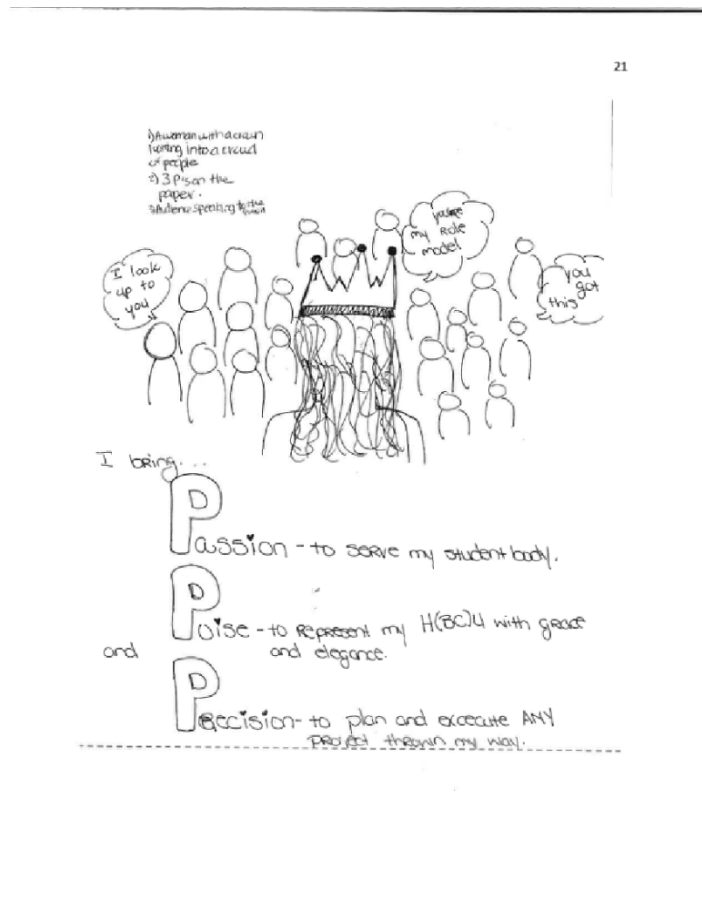 21
1) A woman with a crown
looking into a crowd
of people
2) 3 P's on the
paper.
3) Audience speaking to the
I look
up to
you
you're
my Role
model
you
got
this
I bring...
Passion - to serve my student body.
Poise - to represent my H(BC)U with grace
and and elegance.
Precision - to plan and excecute ANY
project thrown my way.